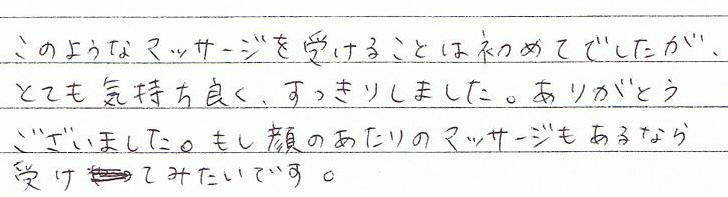 このようなマッサージを受けることは初めてでしたが、
とても気持ち良く、すっきりしました。ありがとう
ございました。もし顔のあたりのマッサージもあるなら
受けてみたいです。